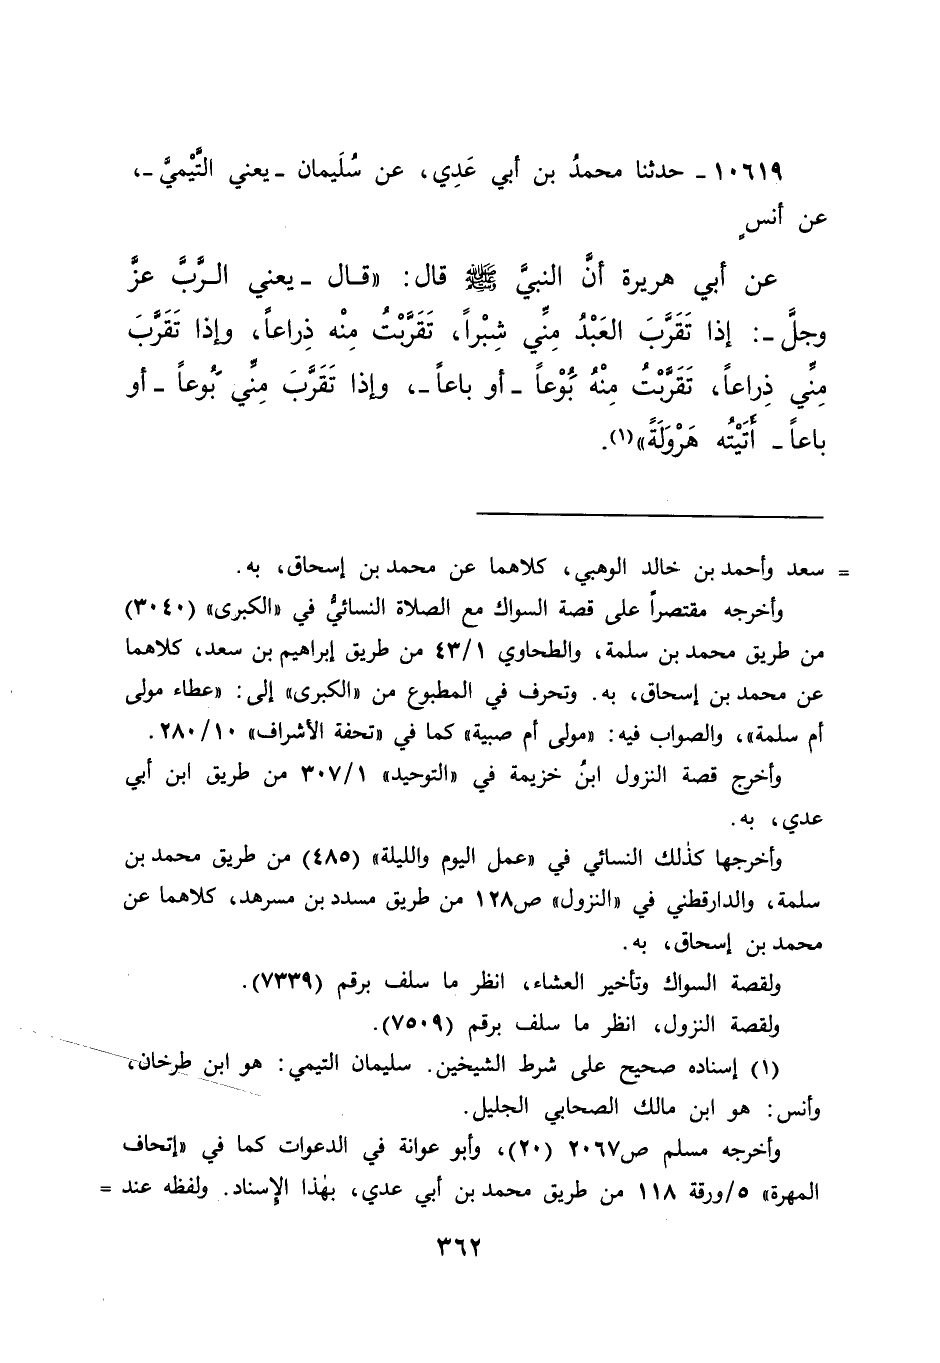 ١٠٦١٩ - حدثنا محمدُ بن أبي عَدِي، عن سُلَيمان - يعني التَّيْميَّ -،
عن أنسٍ
عن أبي هريرة أنَّ النبيَّ ﷺ قال: «قال - يعني الرَّبَّ عزَّ
وجلَّ -: إذا تَقَرَّبَ العَبْدُ مِنِّي شِبْراً، تَقَرَّبْتُ مِنْه ذِراعاً، وإذا تَقَرَّبَ
مِنِّي ذِراعاً، تَقَرَّبْتُ مِنْهُ بُوْعاً - أو باعاً -، وإذا تَقَرَّبَ مِنِّي بُوعاً - أو
باعاً - أَتَيْتُه هَرْوَلَةً»(١).
= سعد وأحمد بن خالد الوهبي، كلاهما عن محمد بن إسحاق، به.
وأخرجه مقتصراً على قصة السواك مع الصلاة النسائيُّ في «الكبرى» (٣٠٤٠)
من طريق محمد بن سلمة، والطحاوي ٤٣/١ من طريق إبراهيم بن سعد، كلاهما
عن محمد بن إسحاق، به. وتحرف في المطبوع من «الكبرى» إلى: «عطاء مولى
أم سلمة»، والصواب فيه: «مولى أم صبية» كما في «تحفة الأشراف» ٢٨٠/١٠.
وأخرج قصة النزول ابنُ خزيمة في «التوحيد» ٣٠٧/١ من طريق ابن أبي
عدي، به.
وأخرجها كذٰلك النسائي في «عمل اليوم والليلة» (٤٨٥) من طريق محمد بن
سلمة، والدارقطني في «النزول» ص١٢٨ من طريق مسدد بن مسرهد، كلاهما عن
محمد بن إسحاق، به.
ولقصة السواك وتأخير العشاء، انظر ما سلف برقم (٧٣٣٩).
ولقصة النزول، انظر ما سلف برقم (٧٥٠٩).
(١) إسناده صحيح على شرط الشيخين. سليمان التيمي: هو ابن طرخان،
وأنس: هو ابن مالك الصحابي الجليل.
وأخرجه مسلم ص٢٠٦٧ (٢٠)، وأبو عوانة في الدعوات كما في «إتحاف
المهرة» ٥/ورقة ١١٨ من طريق محمد بن أبي عدي، بهٰذا الإسناد. ولفظه عند =
٣٦٢